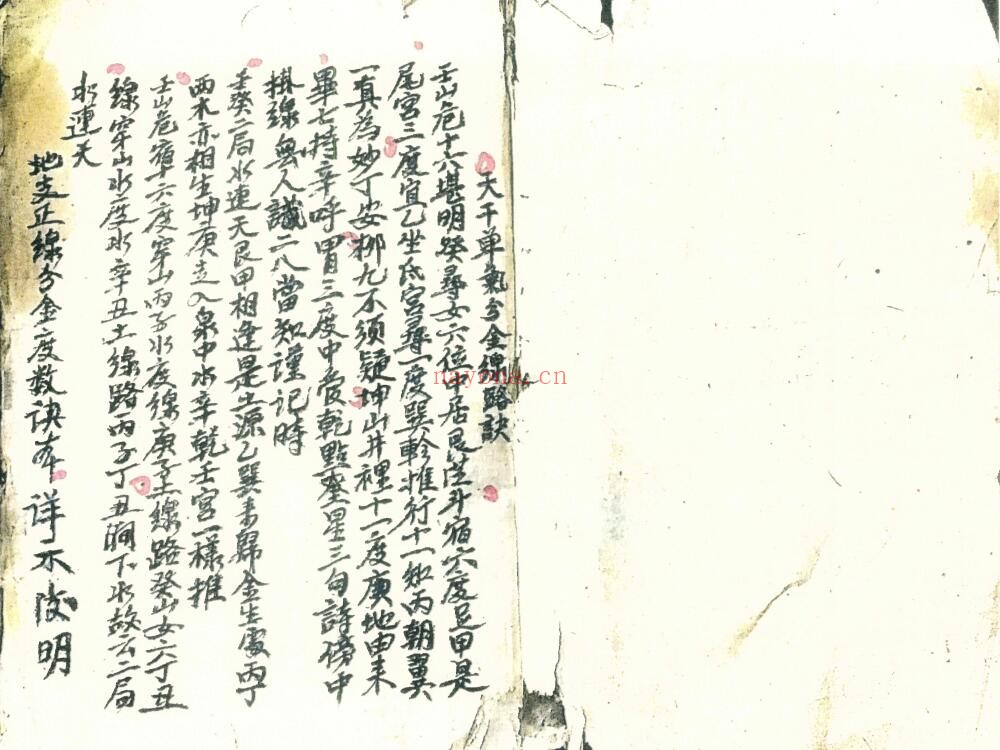 天干单氣分金線路訣
壬山危十六堪明癸尋女六位中居艮灮斗宿六度足甲是
尾宮三度宜乙坐氐宮尋一度巽軫推行十一知丙朝翼
一真為妙丁安柳九不須疑坤山井裡十一度庚地由来
畢七持辛呼胃三度中食乾點奎星三句詩傍中
掛線無人識二八當知謹記時
壬癸二局水連天艮甲相逢是土源乙巽来歸金生處丙丁
西木亦相生坤庚走入泉中水辛乾壬宮一樣推
壬山危宿十六度穿山丙子水度線庚子土線路癸山女六丁丑
線穿山水度水辛丑土線路丙子丁丑澗下水故云二局
水連天
地支正線分金度数訣本詳不後明
nayona.cn